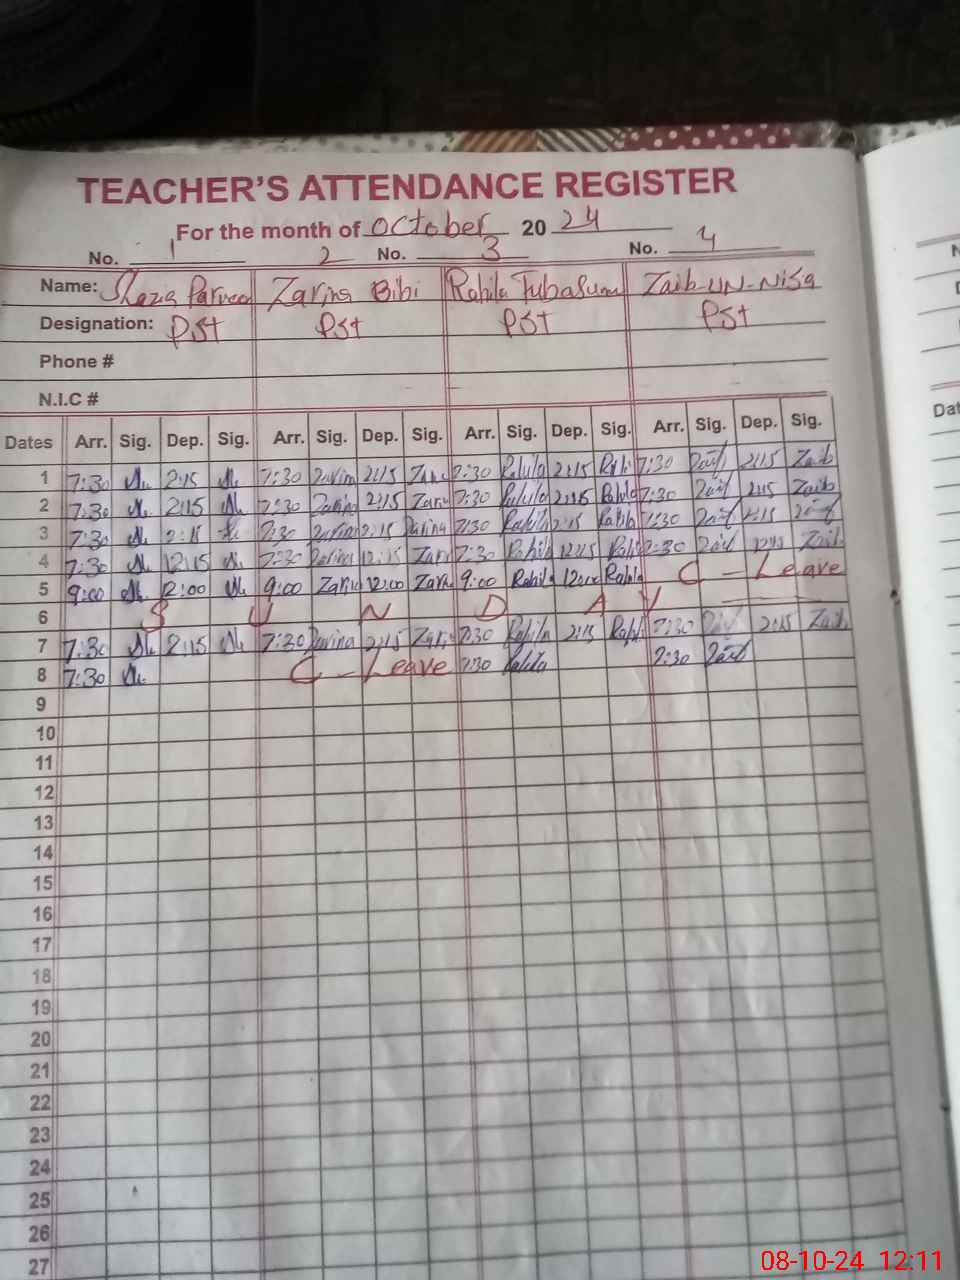 TEACHER'S ATTENDANCE REGISTER
For the month of October 20 24
No. 1 2 No. 3 No. 4
Name: Shazia Parveen Zarina Bibi Rahila Tubasum Zaib-UN-Nisa
Designation: PST PST PST PST
Phone #
N.I.C #
Dates Arr. Sig. Dep. Sig. Arr. Sig. Dep. Sig. Arr. Sig. Dep. Sig. Arr. Sig. Dep. Sig.
1 7:30 2:15 7:30 Zarina 2:15 Zarina 7:30 Rahila 2:15 Rahila 7:30 Zaib 2:15 Zaib
2 7:30 2:15 7:30 Zarina 2:15 Zarina 7:30 Rahila 2:15 Rahila 7:30 Zaib 2:15 Zaib
3 7:30 2:15 7:30 Zarina 2:15 Zarina 7:30 Rahila 2:15 Rahila 7:30 Zaib 2:15 Zaib
4 7:30 12:15 7:30 Zarina 12:15 Zarina 7:30 Rahila 12:15 Rahila 7:30 Zaib 12:15 Zaib
5 9:00 12:00 9:00 Zarina 12:00 Zarina 9:00 Rahila 12:00 Rahila C - Leave
6 S U N D A Y
7 7:30 2:15 7:30 Zarina 2:15 Zarina 7:30 Rahila 2:15 Rahila 7:30 Zaib 2:15 Zaib
8 7:30 C - Leave 7:30 Rahila 7:30 Zaib
9
10
11
12
13
14
15
16
17
18
19
20
21
22
23
24
25
26
27
Dat
08-10-24 12:11